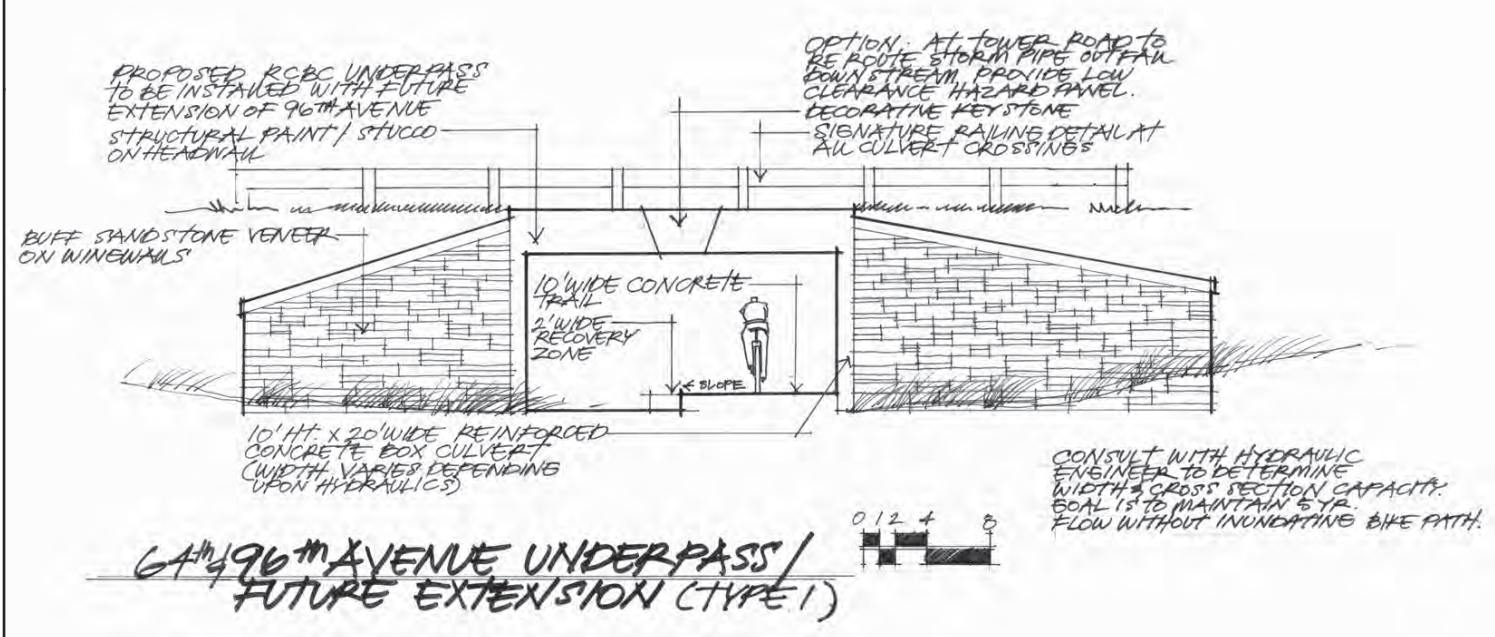 PROPOSED RCBC UNDERPASS
TO BE INSTALLED WITH FUTURE
EXTENSION OF 96TH AVENUE
STRUCTURAL PAINT / STUCCO
ON HEADWALL
OPTION: AT TOWER ROAD TO
RE ROUTE STORM PIPE OUTFALL
DOWN STREAM, PROVIDE LOW
CLEARANCE HAZARD PANEL.
DECORATIVE KEYSTONE
SIGNATURE RAILING DETAIL AT
ALL CULVERT CROSSINGS
BUFF SANDSTONE VENEER
ON WINGWALLS
10' WIDE CONCRETE
TRAIL
2' WIDE
RECOVERY
ZONE
← SLOPE
10' HT. X 20' WIDE REINFORCED
CONCRETE BOX CULVERT
(WIDTH VARIES DEPENDING
UPON HYDRAULICS)
CONSULT WITH HYDRAULIC
ENGINEER TO DETERMINE
WIDTH & CROSS SECTION CAPACITY.
GOAL IS TO MAINTAIN 5 YR.
FLOW WITHOUT INUNDATING BIKE PATH.
0 1 2 4 8
64th & 96th AVENUE UNDERPASS /
FUTURE EXTENSION (TYPE 1)